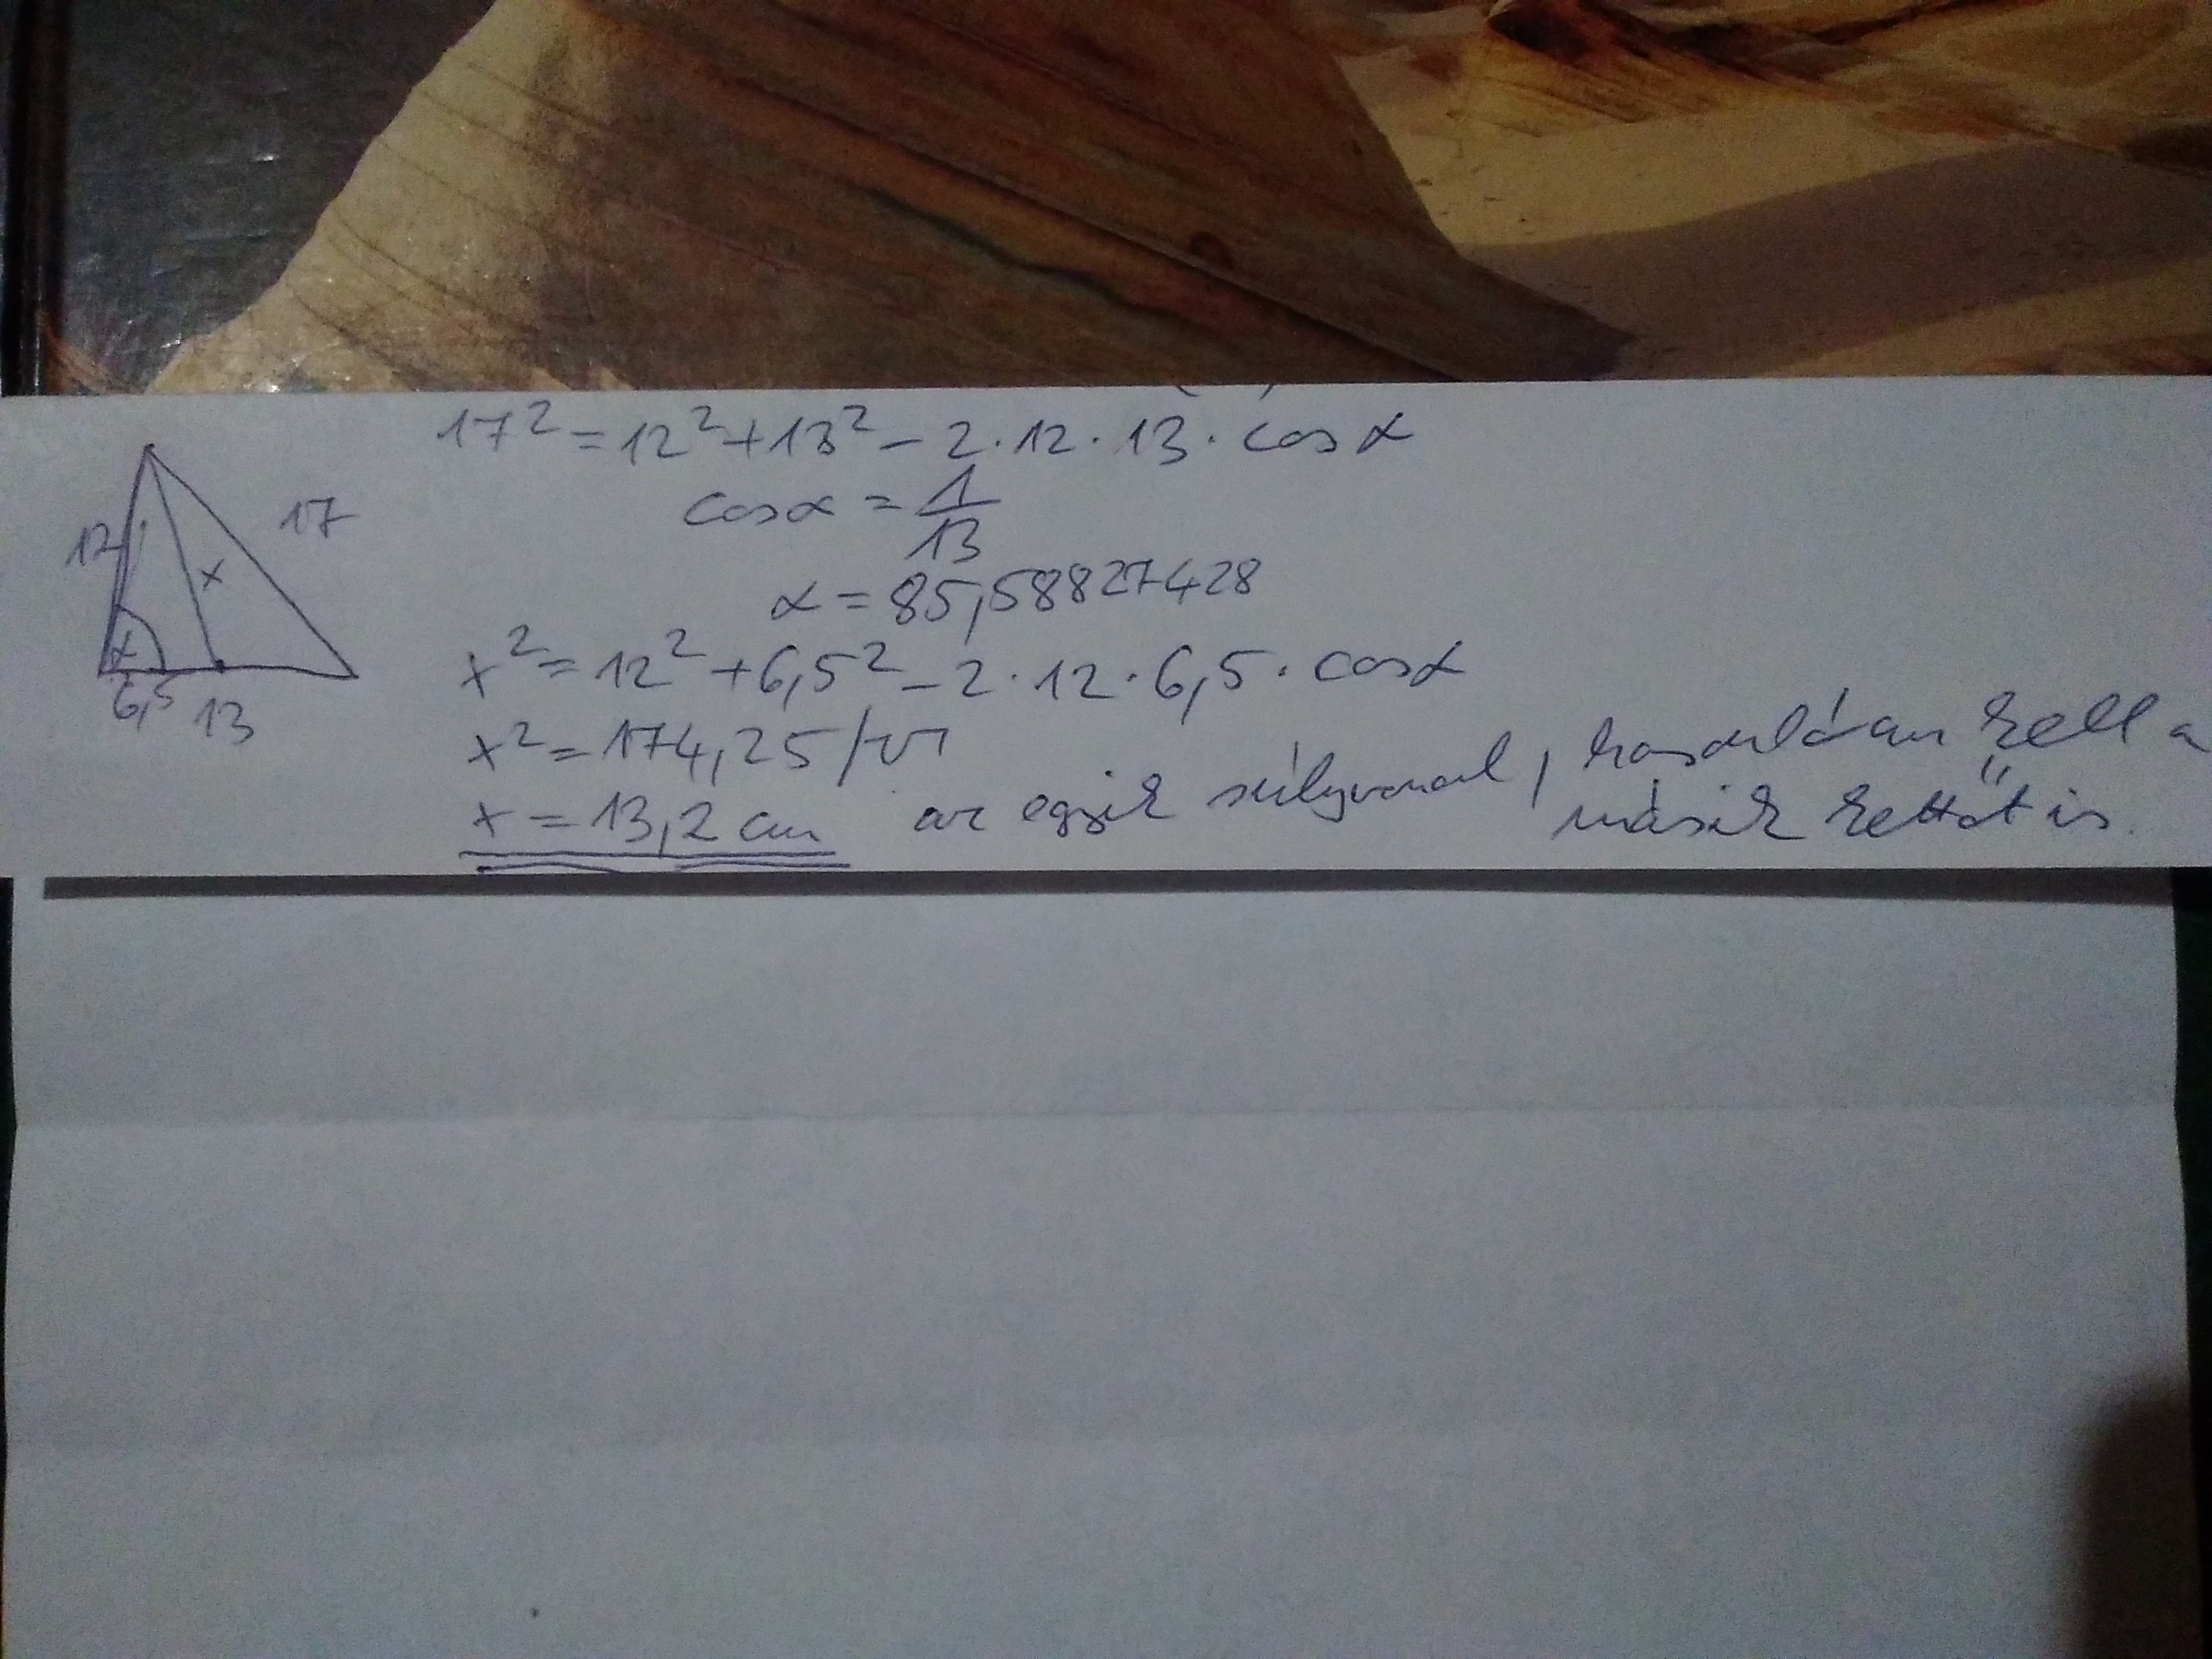 17² = 12² + 13² - 2·12·13·cos α
cos α = 1/13
α = 85,58827428
12
17
x
α
6,5
13
x² = 12² + 6,5² - 2·12·6,5·cos α
x² = 174,25 /√
x = 13,2 cm az egyik súlyvonal, hasonlóan kell a
másik kettőt is.